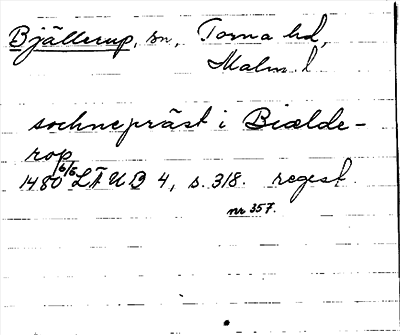 Bjällerup, sn, Torna hd,
Malm. l
sochnepräst i Biælde-
rop
1480 6/6 LÄUB 4, s. 318. regest
nr 357.